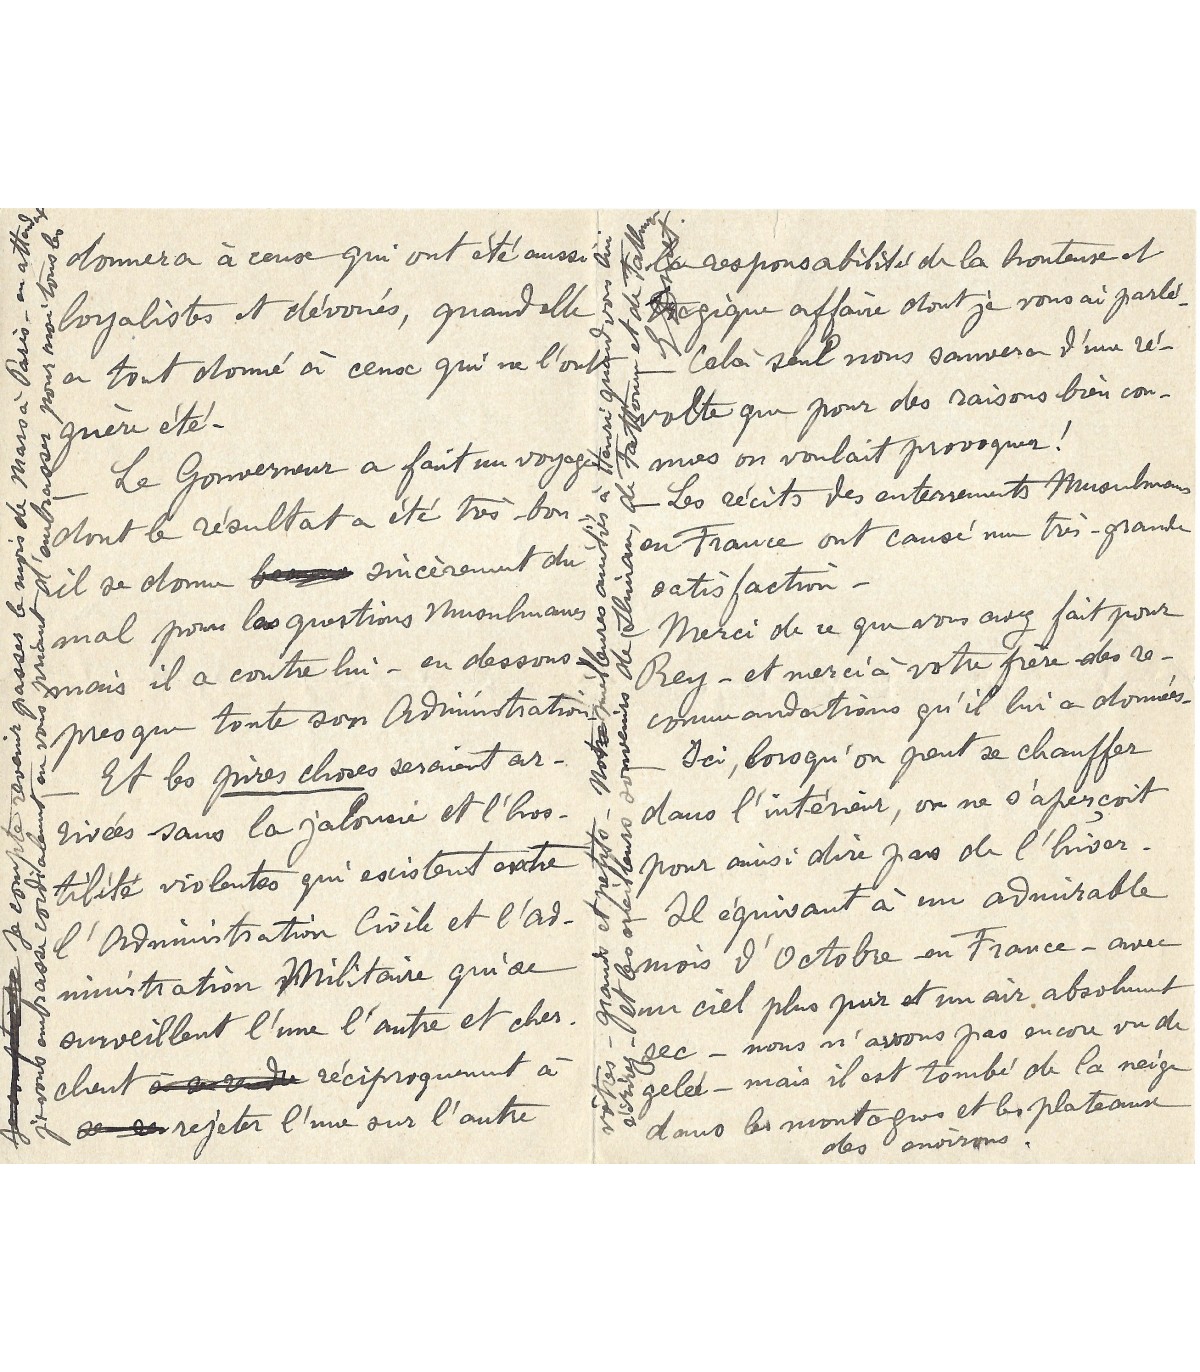 donnera à ceux qui ont été aussi
loyalistes et dévoués, quand elle
a tout donné à ceux qui ne l'ont
guère été -
— Le Gouverneur a fait un voyage
dont le résultat a été très-bon
il se donne sincèrement du
mal pour les questions Musulmanes
mais il a contre lui - en dessous
presque toute son Administration
— Et les pires choses seraient ar-
rivées sans la jalousie et l'hos-
tilité violentes qui existent entre
l'Administration Civile et l'Ad-
ministration Militaire qui se
surveillent l'une l'autre et cher-
chent à se rendre réciproquement à
rejeter l'une sur l'autre
la responsabilité de la honteuse et
tragique affaire dont je vous ai parlé -
— Celà seul nous sauvera d'une ré-
volte que pour des raisons bien con-
nues on voulait provoquer !
— Les récits des enterrements Musulmans
en France ont causé une très-grande
satisfaction -
— Merci de ce que vous avez fait pour
Rey - et merci à votre frère des re-
commandations qu'il lui a données -
— Ici, lorsqu'on peut se chauffer
dans l'intérieur, on ne s'aperçoit
pour ainsi dire pas de l'hiver -
— Il équivaut à un admirable
mois d'Octobre en France - avec
un ciel plus pur et un air absolument
sec - nous n'avons pas encore vu de
gelée - mais il est tombé de la neige
dans les montagnes et les plateaux
des environs.
Je compte revenir passer le mois de Mars à Paris - en attend
je vous embrasse cordialement en vous priant d'embrasser pour moi tous les
vôtres - grands et petits - Notre meilleures amitiés à Henri quand vous lui
écrirez - et les meilleurs souvenirs de Sliman, de
E. Dinet.